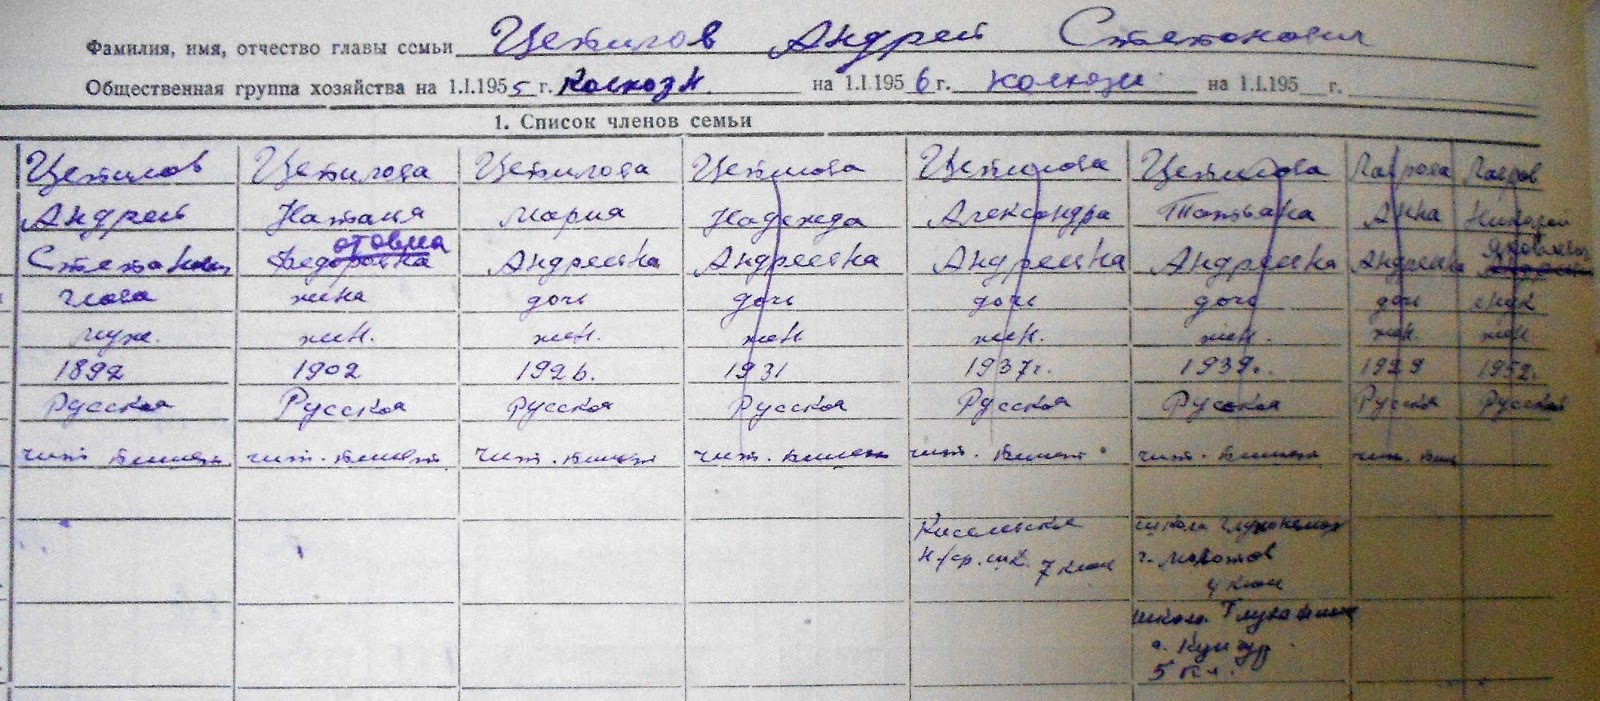 Фамилия, имя, отчество главы семьи Цепилов Андрей Степанович
Общественная группа хозяйства на 1.I.1955 г. колхозн. на 1.I.1956 г. колхозн. на 1.I.195 г.
1. Список членов семьи
Цепилов Цепилова Цепилова Цепилова Цепилова Цепилова Лаврова Лавров
Андрей Наталия Мария Надежда Александра Татьяна Анна Николай
Степанович Федоровна Андреевна Андреевна Андреевна Андреевна Андреевна
глава жена дочь дочь дочь дочь дочь внук
муж. жен. жен. жен. жен. жен. жен. жен
1892 1902 1926. 1931 1937г. 1939г. 1929 1952г.
Русская Русская Русская Русская Русская Русская Русская Русский
чит. чит. чит. чит. чит. чит. чит.
школа глухонемых
н/ср. шк. 7 клас г. Молотов
4 клас
школа
г. Кунгур
5 кл.